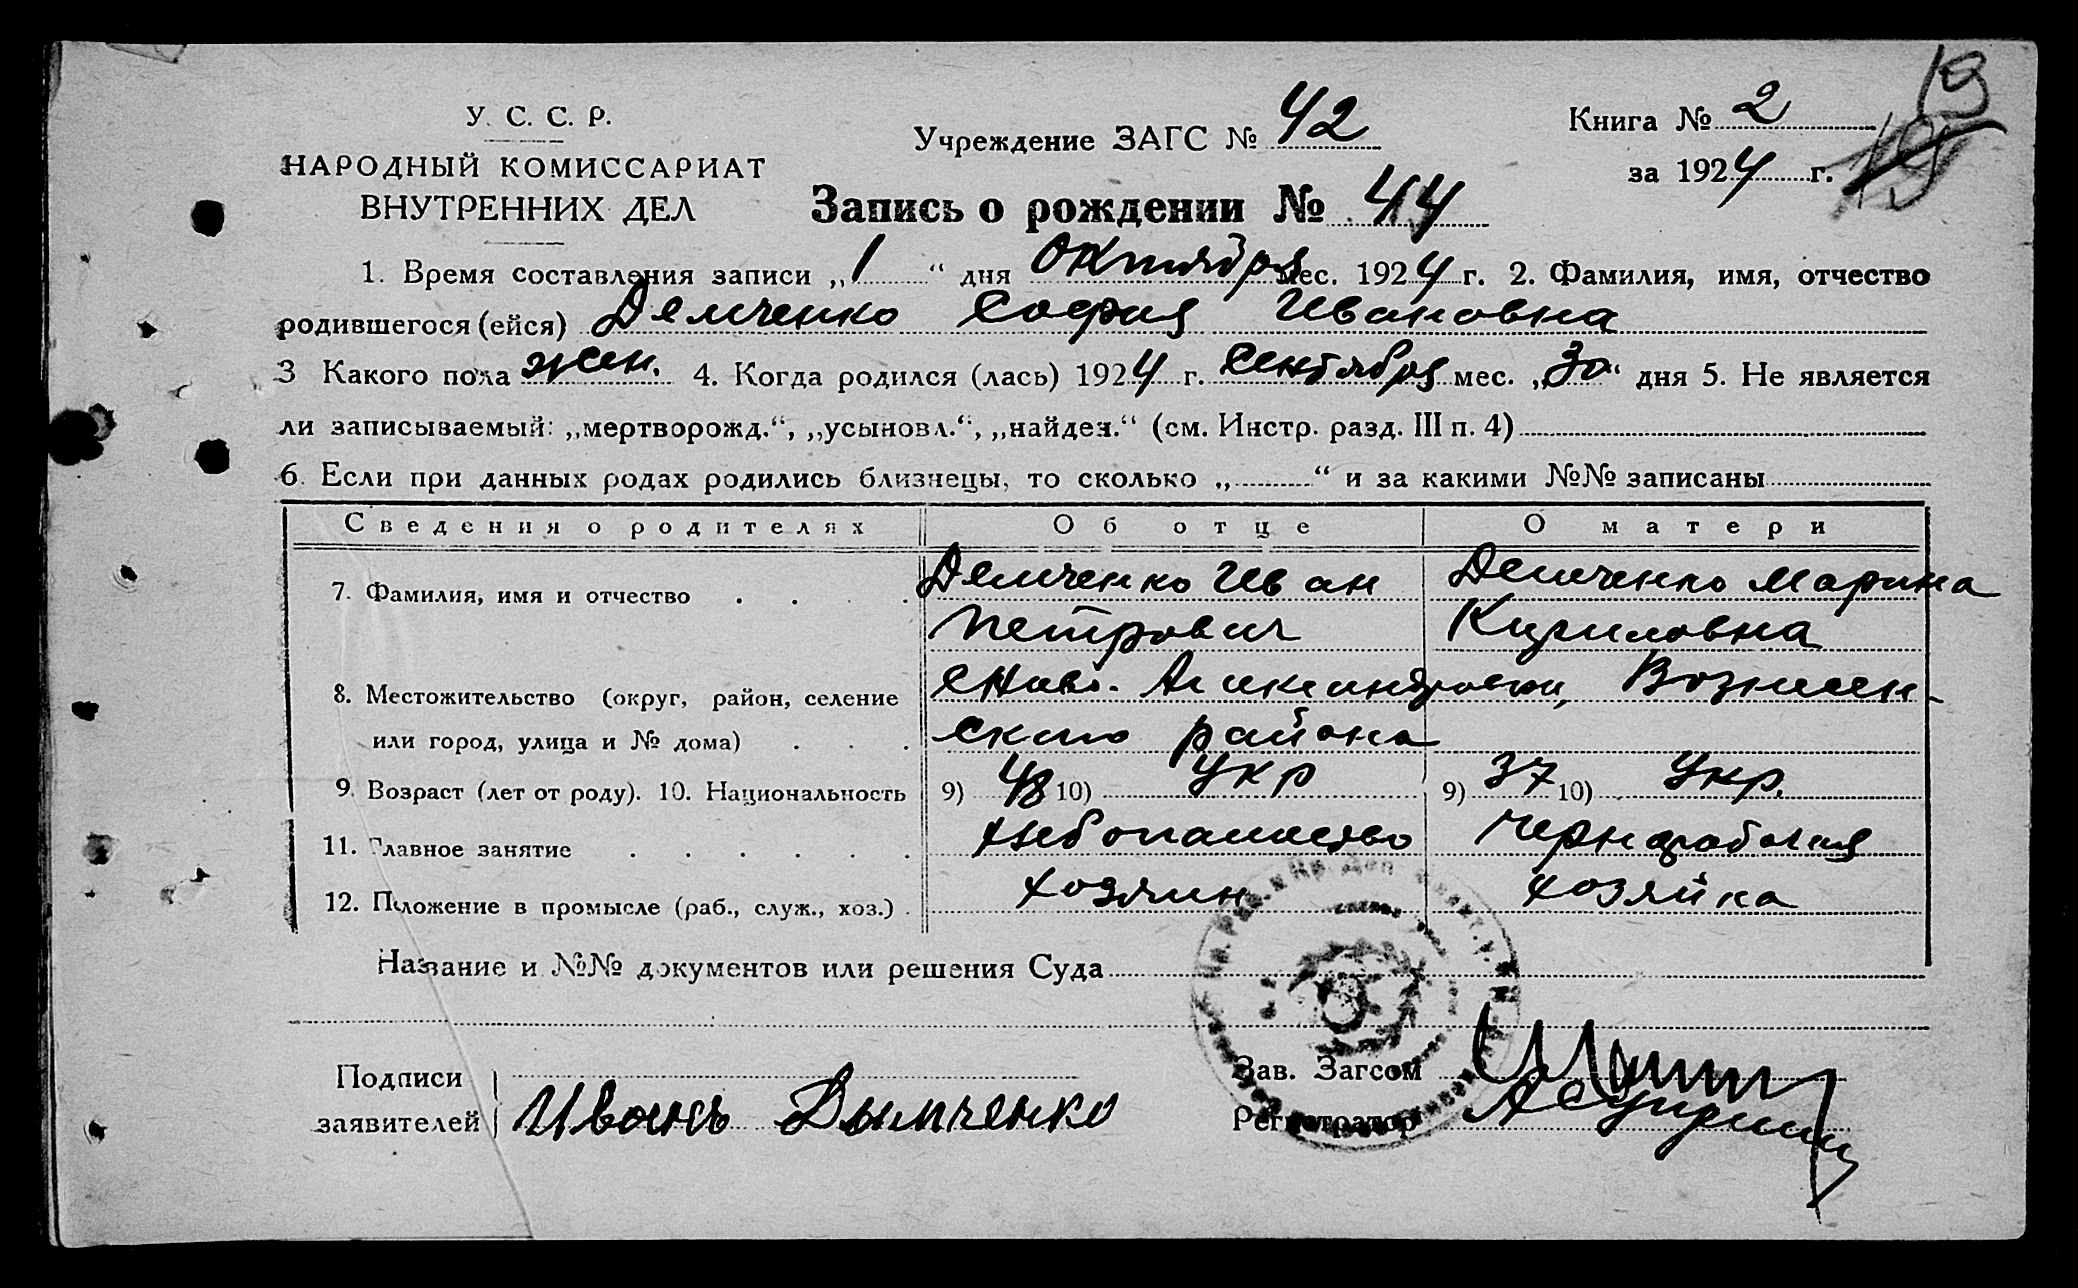 У. С. С. Р.
НАРОДНЫЙ КОМИССАРИАТ
ВНУТРЕННИХ ДЕЛ
Учреждение ЗАГС № 42
Книга № 2
за 1924 г.
19
Запись о рождении № 44
1. Время составления записи „1“ дня Октября мес. 1924 г. 2. Фамилия, имя, отчество
родившегося (ейся) Демченко София Ивановна
3 Какого пола жен. 4. Когда родился (лась) 1924 г. Сентября мес. „30“ дня 5. Не является
ли записываемый: „мертворожд.“, „усыновл.“, „найден.“ (см. Инстр. разд. III п. 4)
6. Если при данных родах родились близнецы, то сколько „ “ и за какими №№ записаны
Сведения о родителях Об отце О матери
7. Фамилия, имя и отчество Демченко Иван Демченко Марина
Петрович Кириловна
8. Местожительство (округ, район, селение с Ново. Александровки, Вознесен-
или город, улица и № дома) ского района
9. Возраст (лет от роду). 10. Национальность 9) 48 10) Укр 9) 37 10) Укр.
11. Главное занятие хлебопашество
12. Положение в промысле (раб., служ., хоз.) хозяин хозяйка
Название и №№ документов или решения Суда
Подписи
заявителей Иванъ Дымченко
Зав. Загсом
Регистратор